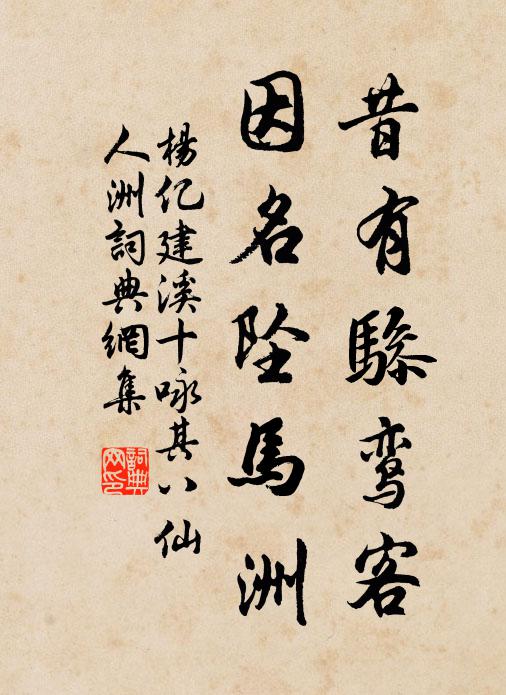 昔有驂鸾客
因名坠馬洲
楊亿建溪十咏其八仙
人洲詞典網集
詞典
网印